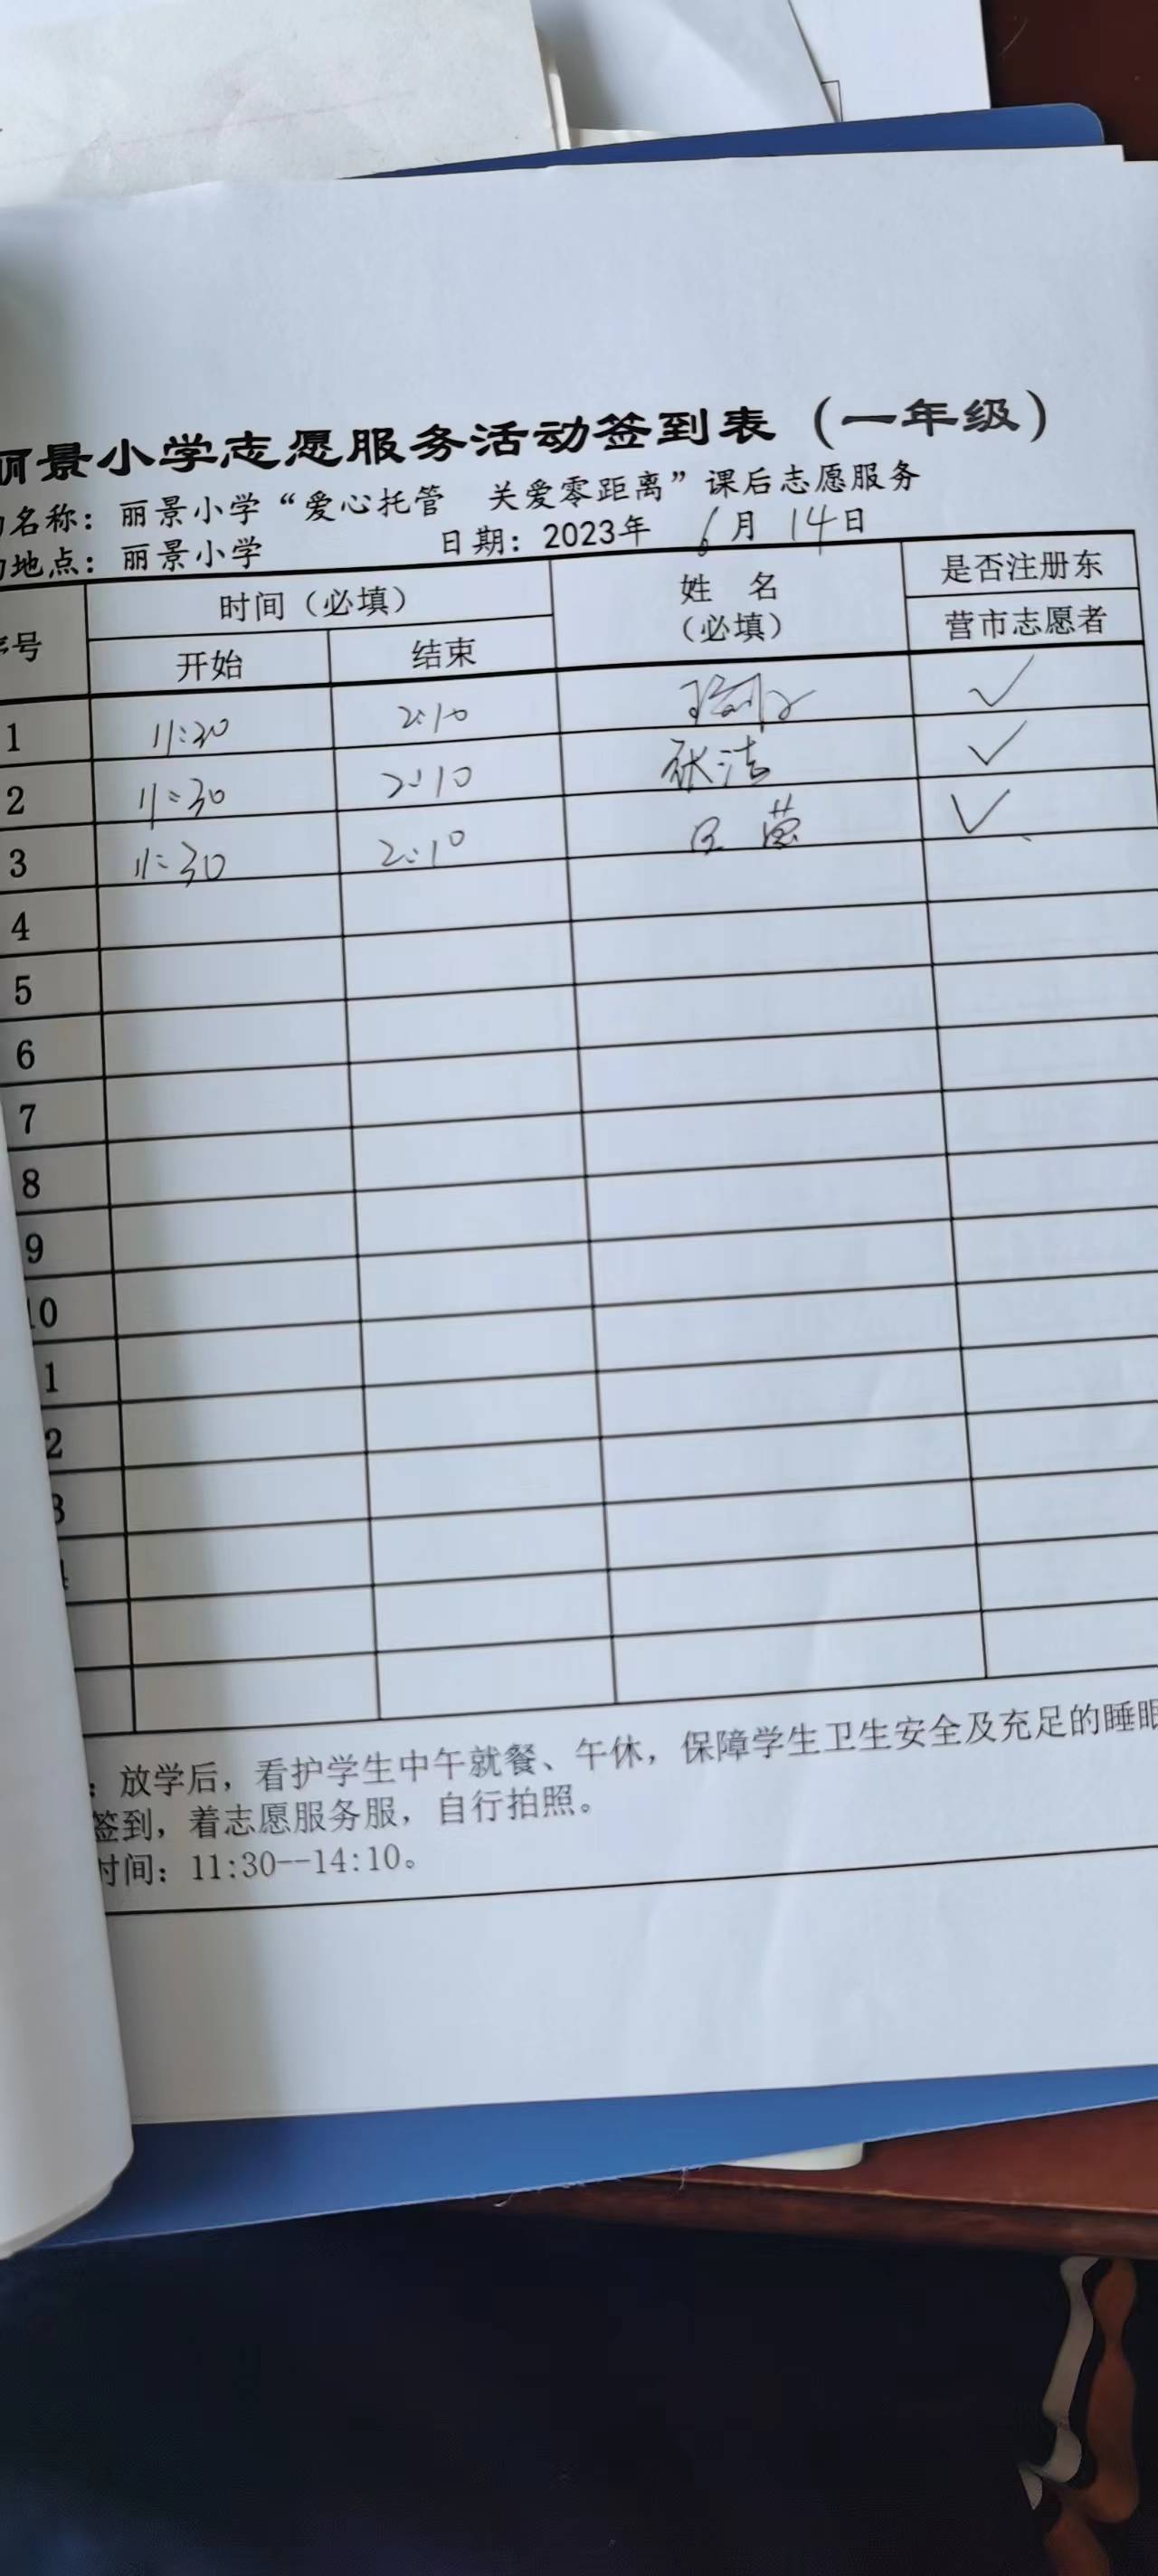 丽景小学志愿服务活动签到表（一年级）
名称：丽景小学“爱心托管 关爱零距离”课后志愿服务
地点：丽景小学 日期：2023年 6月 14日
序号 时间（必填） 姓 名 是否注册东
开始 结束 （必填） 营市志愿者
1 11:30 2:10 ✓
2 11:30 2:10 张洁 ✓
3 11:30 2:10 ✓
4
5
6
7
8
9
10
1
2
3
4
：放学后，看护学生中午就餐、午休，保障学生卫生安全及充足的睡眠
签到，着志愿服务服，自行拍照。
时间：11:30--14:10。